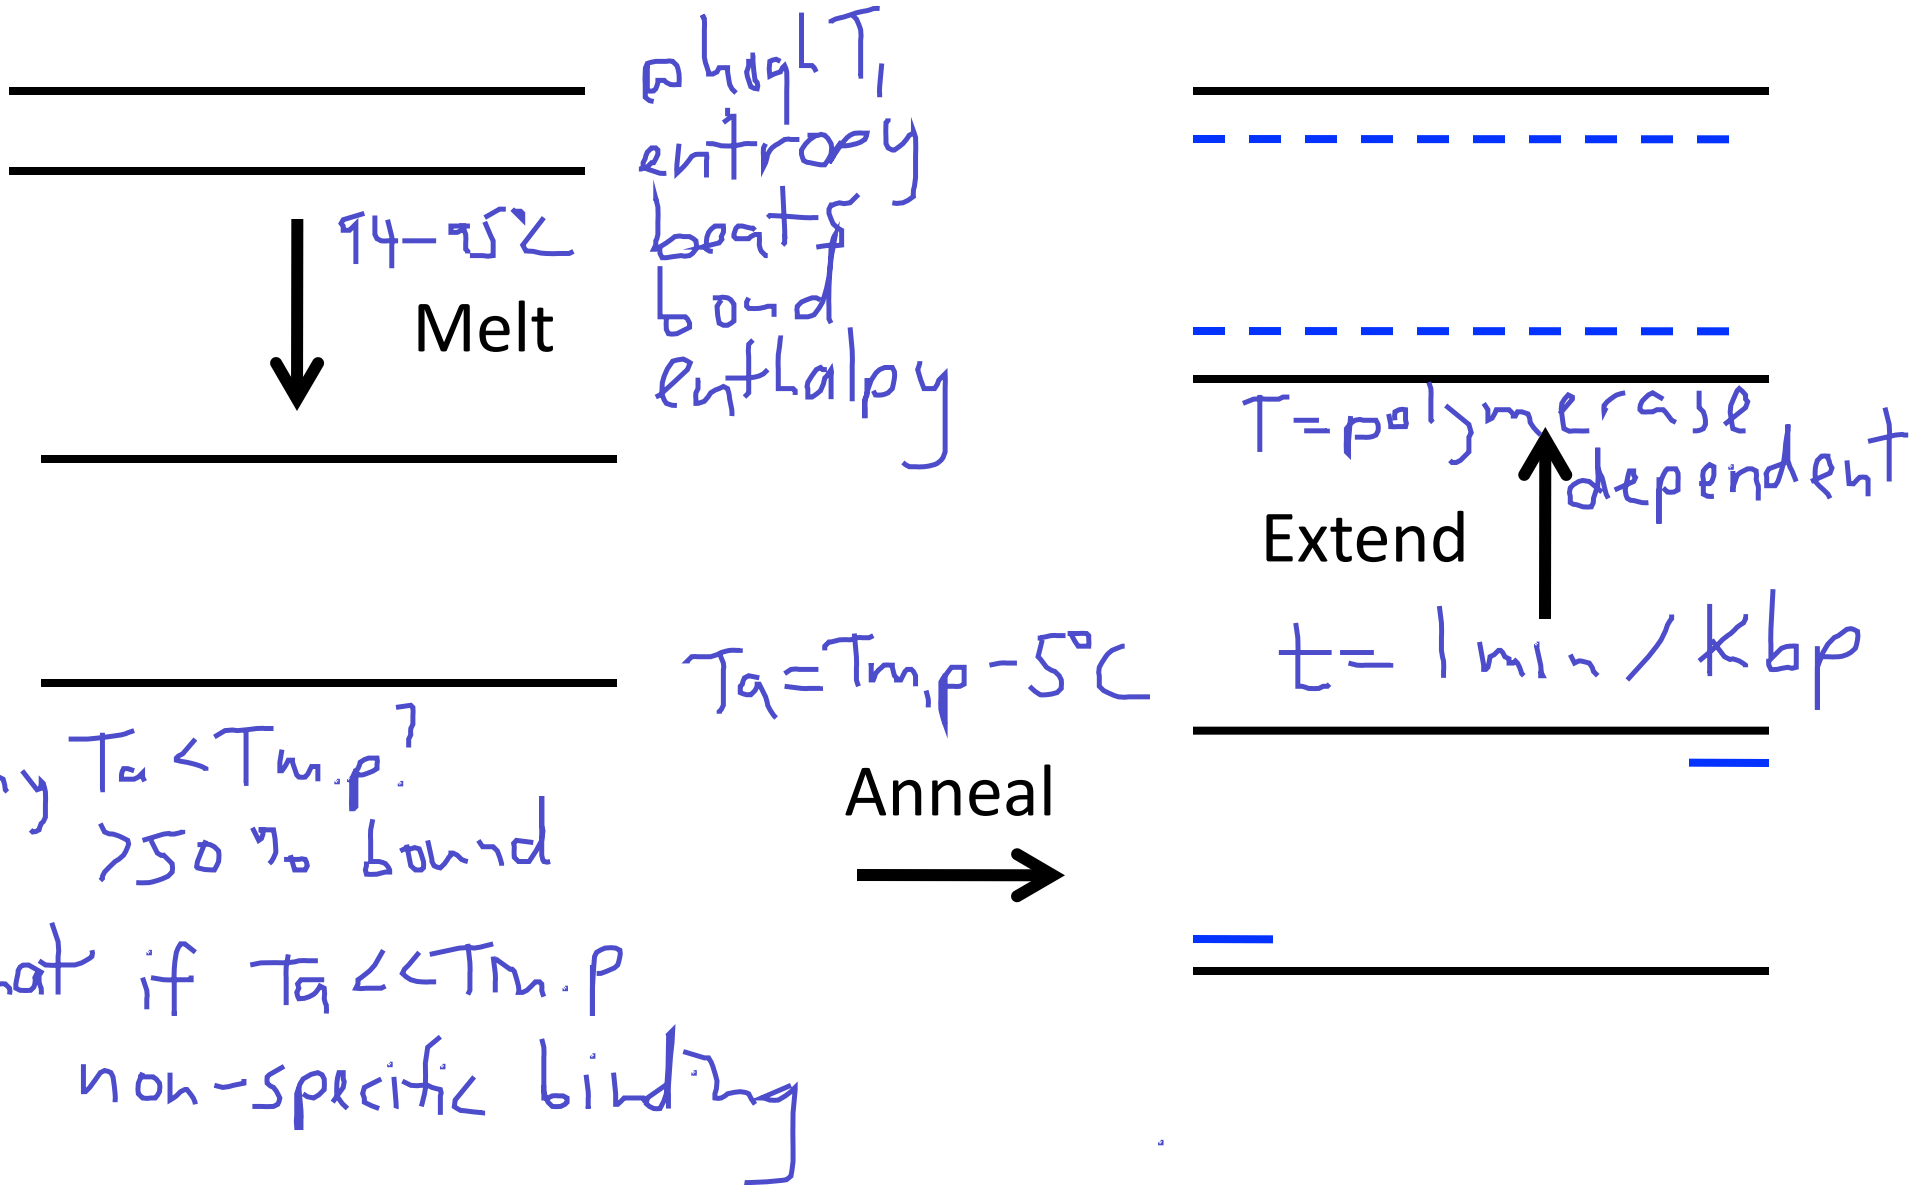 @ high T,
entropy
beats
bond
enthalpy
94-95°C
Melt
T = polymerase
dependent
Extend
t = 1 min / Kbp
Ta = Tm,p - 5°C
Anneal
Ta < Tm.p.?
>50% bound
if Ta << Tm.p
non-specific binding